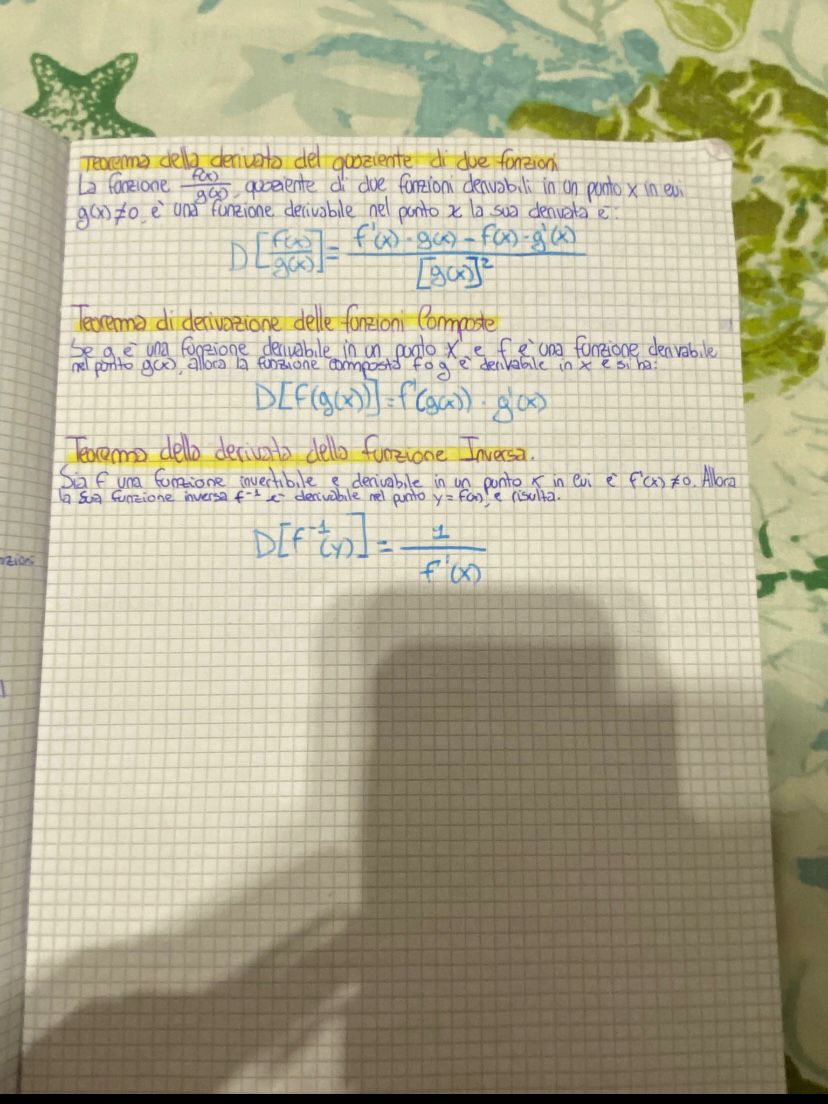 Teorema della derivata del quoziente di due funzioni
La funzione f(x)/g(x), quoziente di due funzioni derivabili in un punto x in cui
g(x) ≠ 0, è una funzione derivabile nel punto x la sua derivata è:
D[f(x)/g(x)] = f'(x) · g(x) - f(x) · g'(x) / [g(x)]²
Teorema di derivazione delle funzioni Composte
Se g è una funzione derivabile in un punto x e f è una funzione derivabile
nel punto g(x), allora la funzione composta f o g è derivabile in x e si ha:
D[f(g(x))] = f'(g(x)) · g'(x)
Teorema della derivata della funzione Inversa.
Sia f una funzione invertibile e derivabile in un punto x in cui è f'(x) ≠ 0. Allora
la sua funzione inversa f⁻¹ è derivabile nel punto y = f(x), e risulta.
D[f⁻¹(y)] = 1 / f'(x)
nzioni